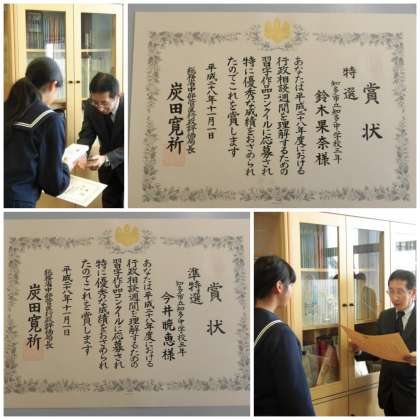 賞状
特選
知多市立知多中学校三年
鈴木果奈様
あなたは平成二十八年度における
行政相談週間を理解するための
習字作品コンクールに応募され
特に優秀な成績をおさめられ
たのでこれを賞します
平成二十八年十一月一日
総務省中部管区行政評価局長
炭田寛祈
賞状
準特選
知多市立知多中学校三年
今井暁恵様
あなたは平成二十八年度における
行政相談週間を理解するための
習字作品コンクールに応募され
特に優秀な成績をおさめられ
たのでこれを賞します
平成二十八年十一月一日
総務省中部管区行政評価局長
炭田寛祈